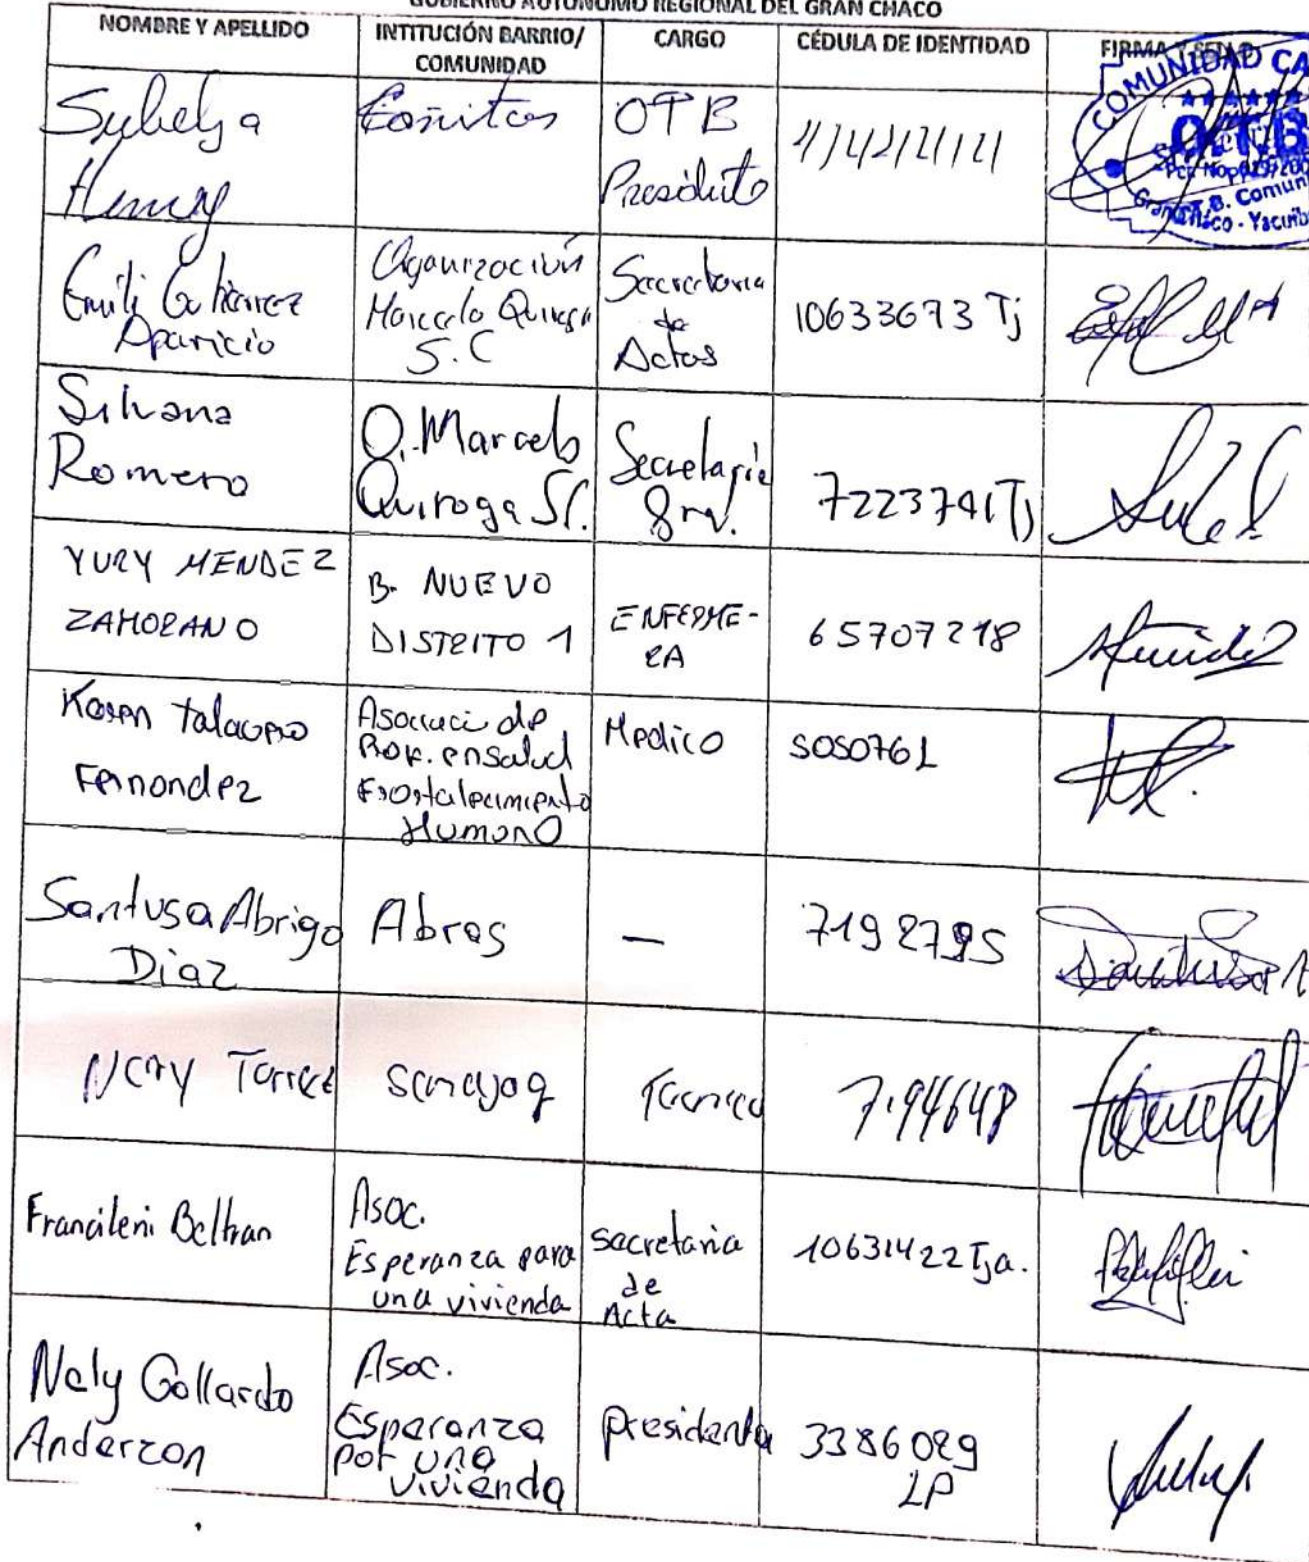 GOBIERNO AUTÓNOMO REGIONAL DEL GRAN CHACO
NOMBRE Y APELLIDO
INTITUCIÓN BARRIO/
COMUNIDAD
CARGO
CÉDULA DE IDENTIDAD
FIRMA
Subelza
Henry
Cañitas
OTB
Presidente
COMUNIDAD CA
O.T.B
O.T.B. Comun
Gran Chaco - Yacuiba
Emili Gutierrez
Aparicio
Organización
Marcelo Quiroga
S.C
Secretaria
de
Actas
10633673 Tj
Silvana
Romero
O. Marcelo
Quiroga SC.
Secretaria
Gral.
7223741 Tj
YURY MENDEZ
ZAMORANO
B. NUEVO
DISTRITO 1
ENFERME-
RA
65707218
Karen talavera
Fernandez
Asociaci de
Prof. en salud
Frortalecimiento
Humano
Medico
5050761
Santusa Abrigo
Diaz
Abras
—
7192795
Nery Torrez
Sanayog
Tecnico
7194648
Francileni Beltran
Asoc.
Esperanza para
una vivienda
secretaria
de
Acta
10631422 Tja.
Nely Gallardo
Anderzon
Asoc.
Esperanza
por una
vivienda
presidenta
3386029
LP